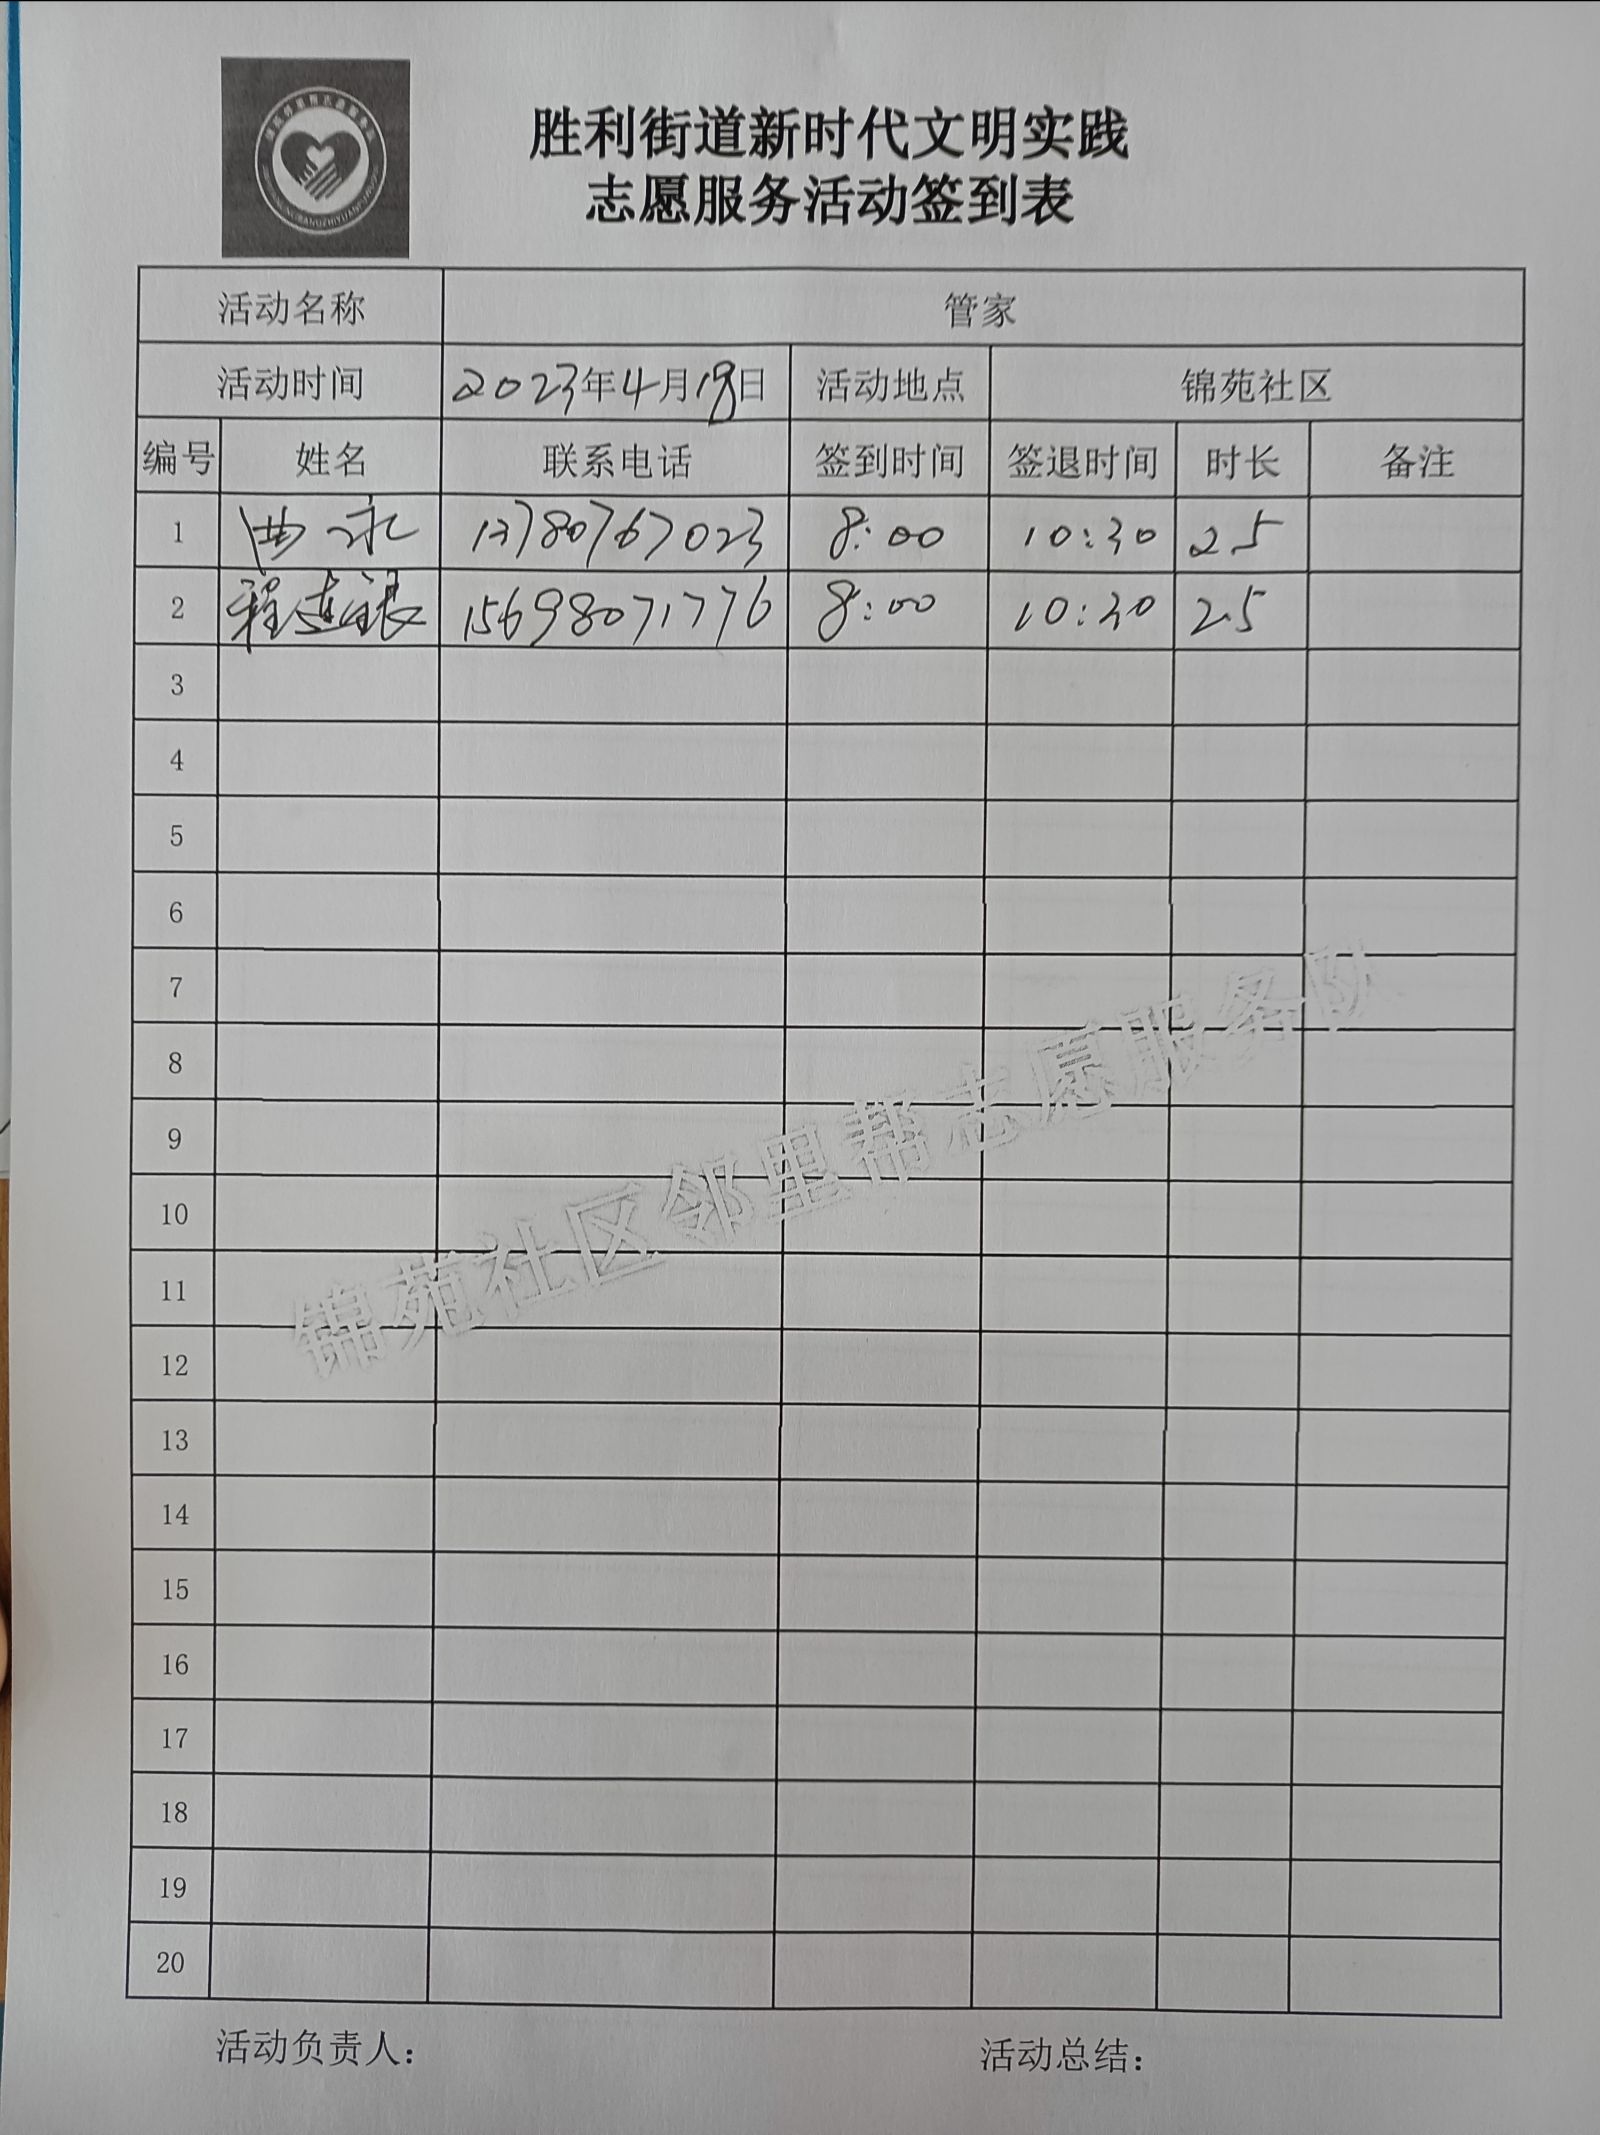 胜利街道新时代文明实践
志愿服务活动签到表
活动名称 管家
活动时间 2023年4月18日 活动地点 锦苑社区
编号 姓名 联系电话 签到时间 签退时间 时长 备注
1 曲永 13780767023 8:00 10:30 2.5
2 程连银 15698071776 8:00 10:30 2.5
3
4
5
6
7
8
9
10
11
12
13
14
15
16
17
18
19
20
锦苑社区邻里帮志愿服务队
活动负责人： 活动总结：